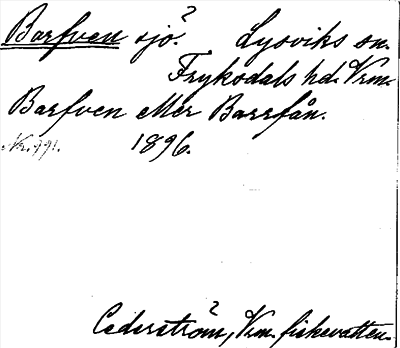 Barfven sjö? Lysviks sn.
Fryksdals hd. Vrm.
Barfven eller Barrfån.
Nr. 991. 1896.
Cederström?, Vrm. fiskevatten.